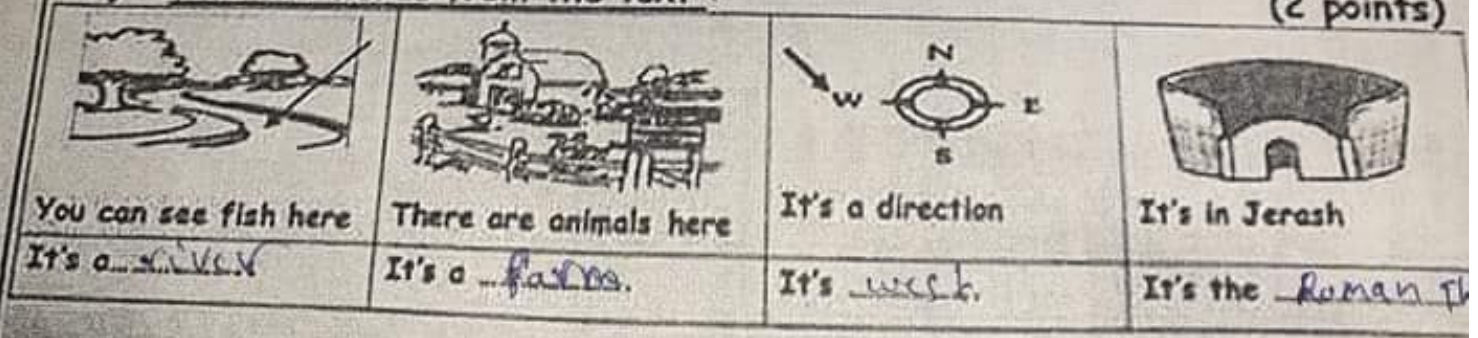 from the text
(2 points)
N
W E
S
You can see fish here
There are animals here
It's a direction
It's in Jerash
It's a river
It's a farm.
It's west.
It's the Roman Th